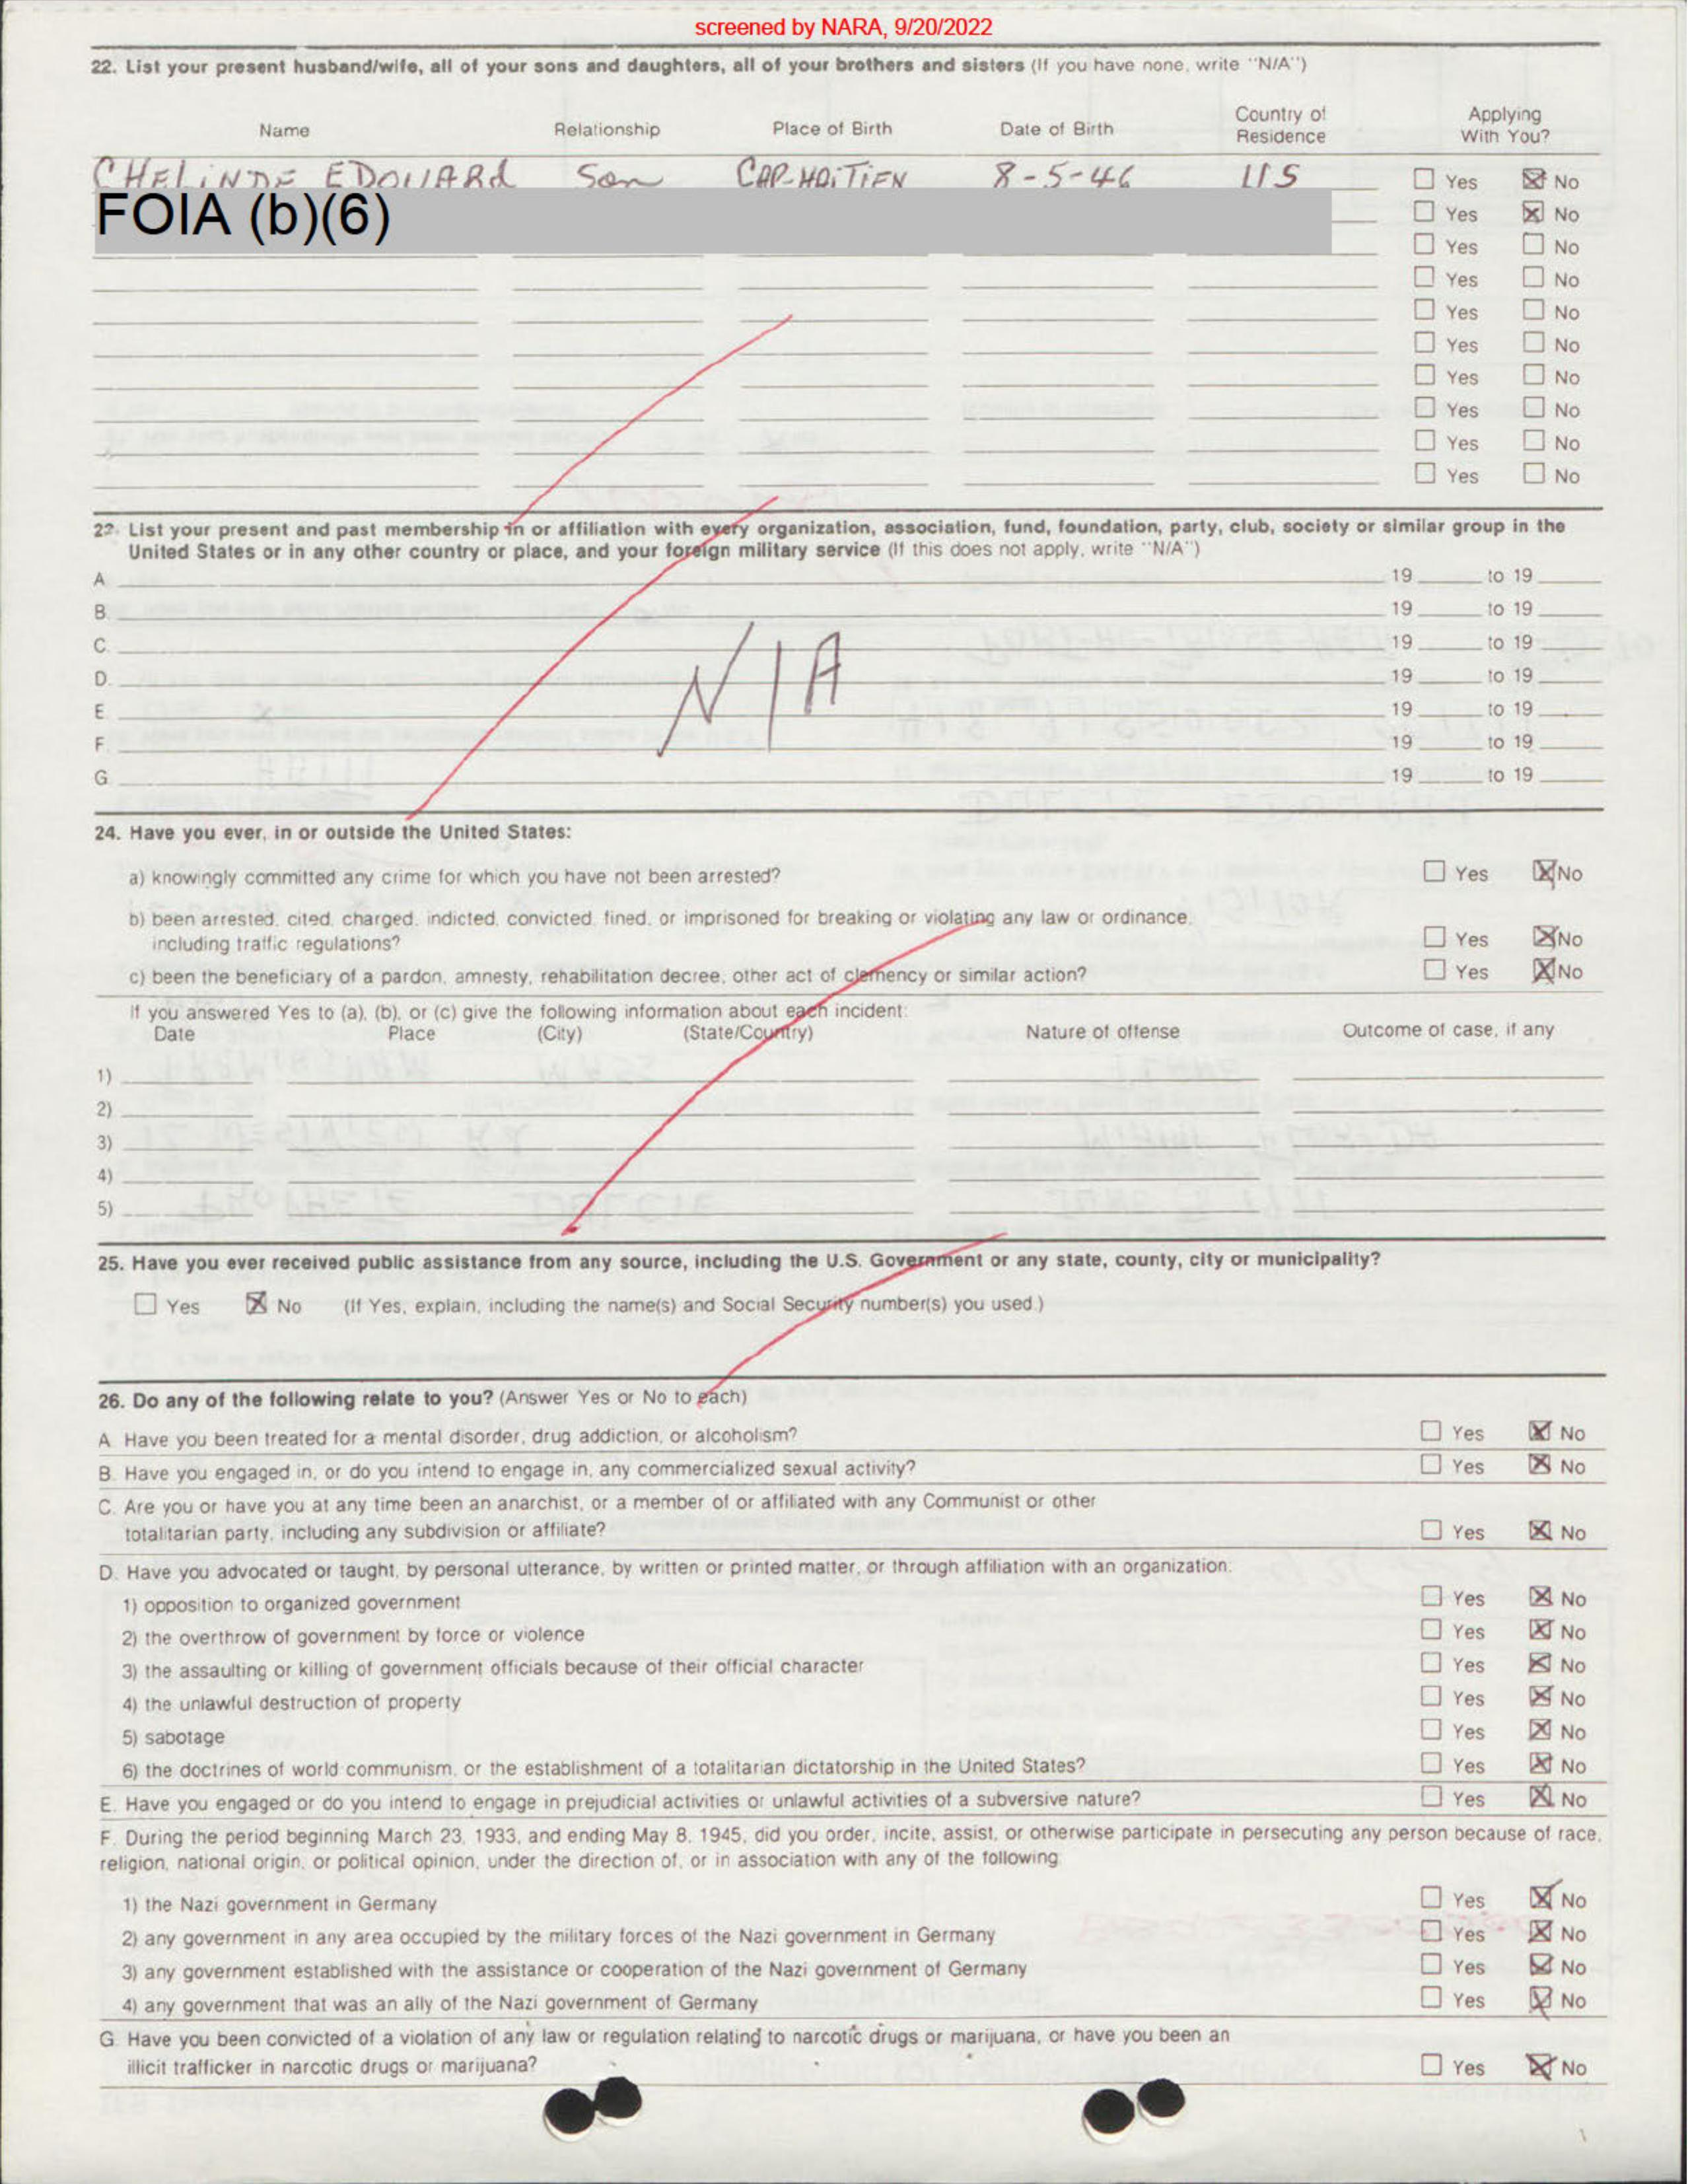 screened by NARA, 9/20/2022
22. List your present husband/wife, all of your sons and daughters, all of your brothers and sisters (If you have none, write "N/A")
Name Relationship Place of Birth Date of Birth Country of Residence Applying With You?
CHELINDE EDOUARD Son CAP-HAITIEN 8-5-46 US ☐ Yes ☒ No
FOIA (b)(6) ☐ Yes ☒ No
☐ Yes ☐ No
☐ Yes ☐ No
☐ Yes ☐ No
☐ Yes ☐ No
☐ Yes ☐ No
☐ Yes ☐ No
☐ Yes ☐ No
☐ Yes ☐ No
23. List your present and past membership in or affiliation with every organization, association, fund, foundation, party, club, society or similar group in the
United States or in any other country or place, and your foreign military service (If this does not apply, write "N/A")
A. 19 to 19
B. 19 to 19
C. 19 to 19
D. 19 to 19
N/A
E. 19 to 19
F. 19 to 19
G. 19 to 19
24. Have you ever, in or outside the United States:
a) knowingly committed any crime for which you have not been arrested? ☐ Yes ☒ No
b) been arrested, cited, charged, indicted, convicted, fined, or imprisoned for breaking or violating any law or ordinance,
including traffic regulations? ☐ Yes ☒ No
c) been the beneficiary of a pardon, amnesty, rehabilitation decree, other act of clemency or similar action? ☐ Yes ☒ No
If you answered Yes to (a), (b), or (c) give the following information about each incident:
Date Place (City) (State/Country) Nature of offense Outcome of case, if any
1)
2)
3)
4)
5)
25. Have you ever received public assistance from any source, including the U.S. Government or any state, county, city or municipality?
☐ Yes ☒ No (If Yes, explain, including the name(s) and Social Security number(s) you used.)
26. Do any of the following relate to you? (Answer Yes or No to each)
A. Have you been treated for a mental disorder, drug addiction, or alcoholism? ☐ Yes ☒ No
B. Have you engaged in, or do you intend to engage in, any commercialized sexual activity? ☐ Yes ☒ No
C. Are you or have you at any time been an anarchist, or a member of or affiliated with any Communist or other
totalitarian party, including any subdivision or affiliate? ☐ Yes ☒ No
D. Have you advocated or taught, by personal utterance, by written or printed matter, or through affiliation with an organization:
1) opposition to organized government ☐ Yes ☒ No
2) the overthrow of government by force or violence ☐ Yes ☒ No
3) the assaulting or killing of government officials because of their official character ☐ Yes ☒ No
4) the unlawful destruction of property ☐ Yes ☒ No
5) sabotage ☐ Yes ☒ No
6) the doctrines of world communism, or the establishment of a totalitarian dictatorship in the United States? ☐ Yes ☒ No
E. Have you engaged or do you intend to engage in prejudicial activities or unlawful activities of a subversive nature? ☐ Yes ☒ No
F. During the period beginning March 23, 1933, and ending May 8, 1945, did you order, incite, assist, or otherwise participate in persecuting any person because of race,
religion, national origin, or political opinion, under the direction of, or in association with any of the following:
1) the Nazi government in Germany ☐ Yes ☒ No
2) any government in any area occupied by the military forces of the Nazi government in Germany ☐ Yes ☒ No
3) any government established with the assistance or cooperation of the Nazi government of Germany ☐ Yes ☒ No
4) any government that was an ally of the Nazi government of Germany ☐ Yes ☒ No
G. Have you been convicted of a violation of any law or regulation relating to narcotic drugs or marijuana, or have you been an
illicit trafficker in narcotic drugs or marijuana? ☐ Yes ☒ No